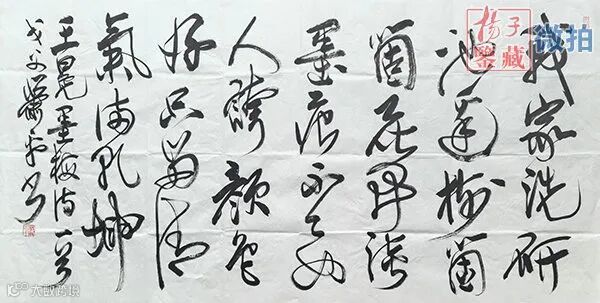 我家洗研
池邊樹箇
箇花開淡
墨痕不要
人誇顏色
好只留清
氣滿乾坤
王冕墨梅诗一首
杨子
鉴藏
微拍
大数跨境